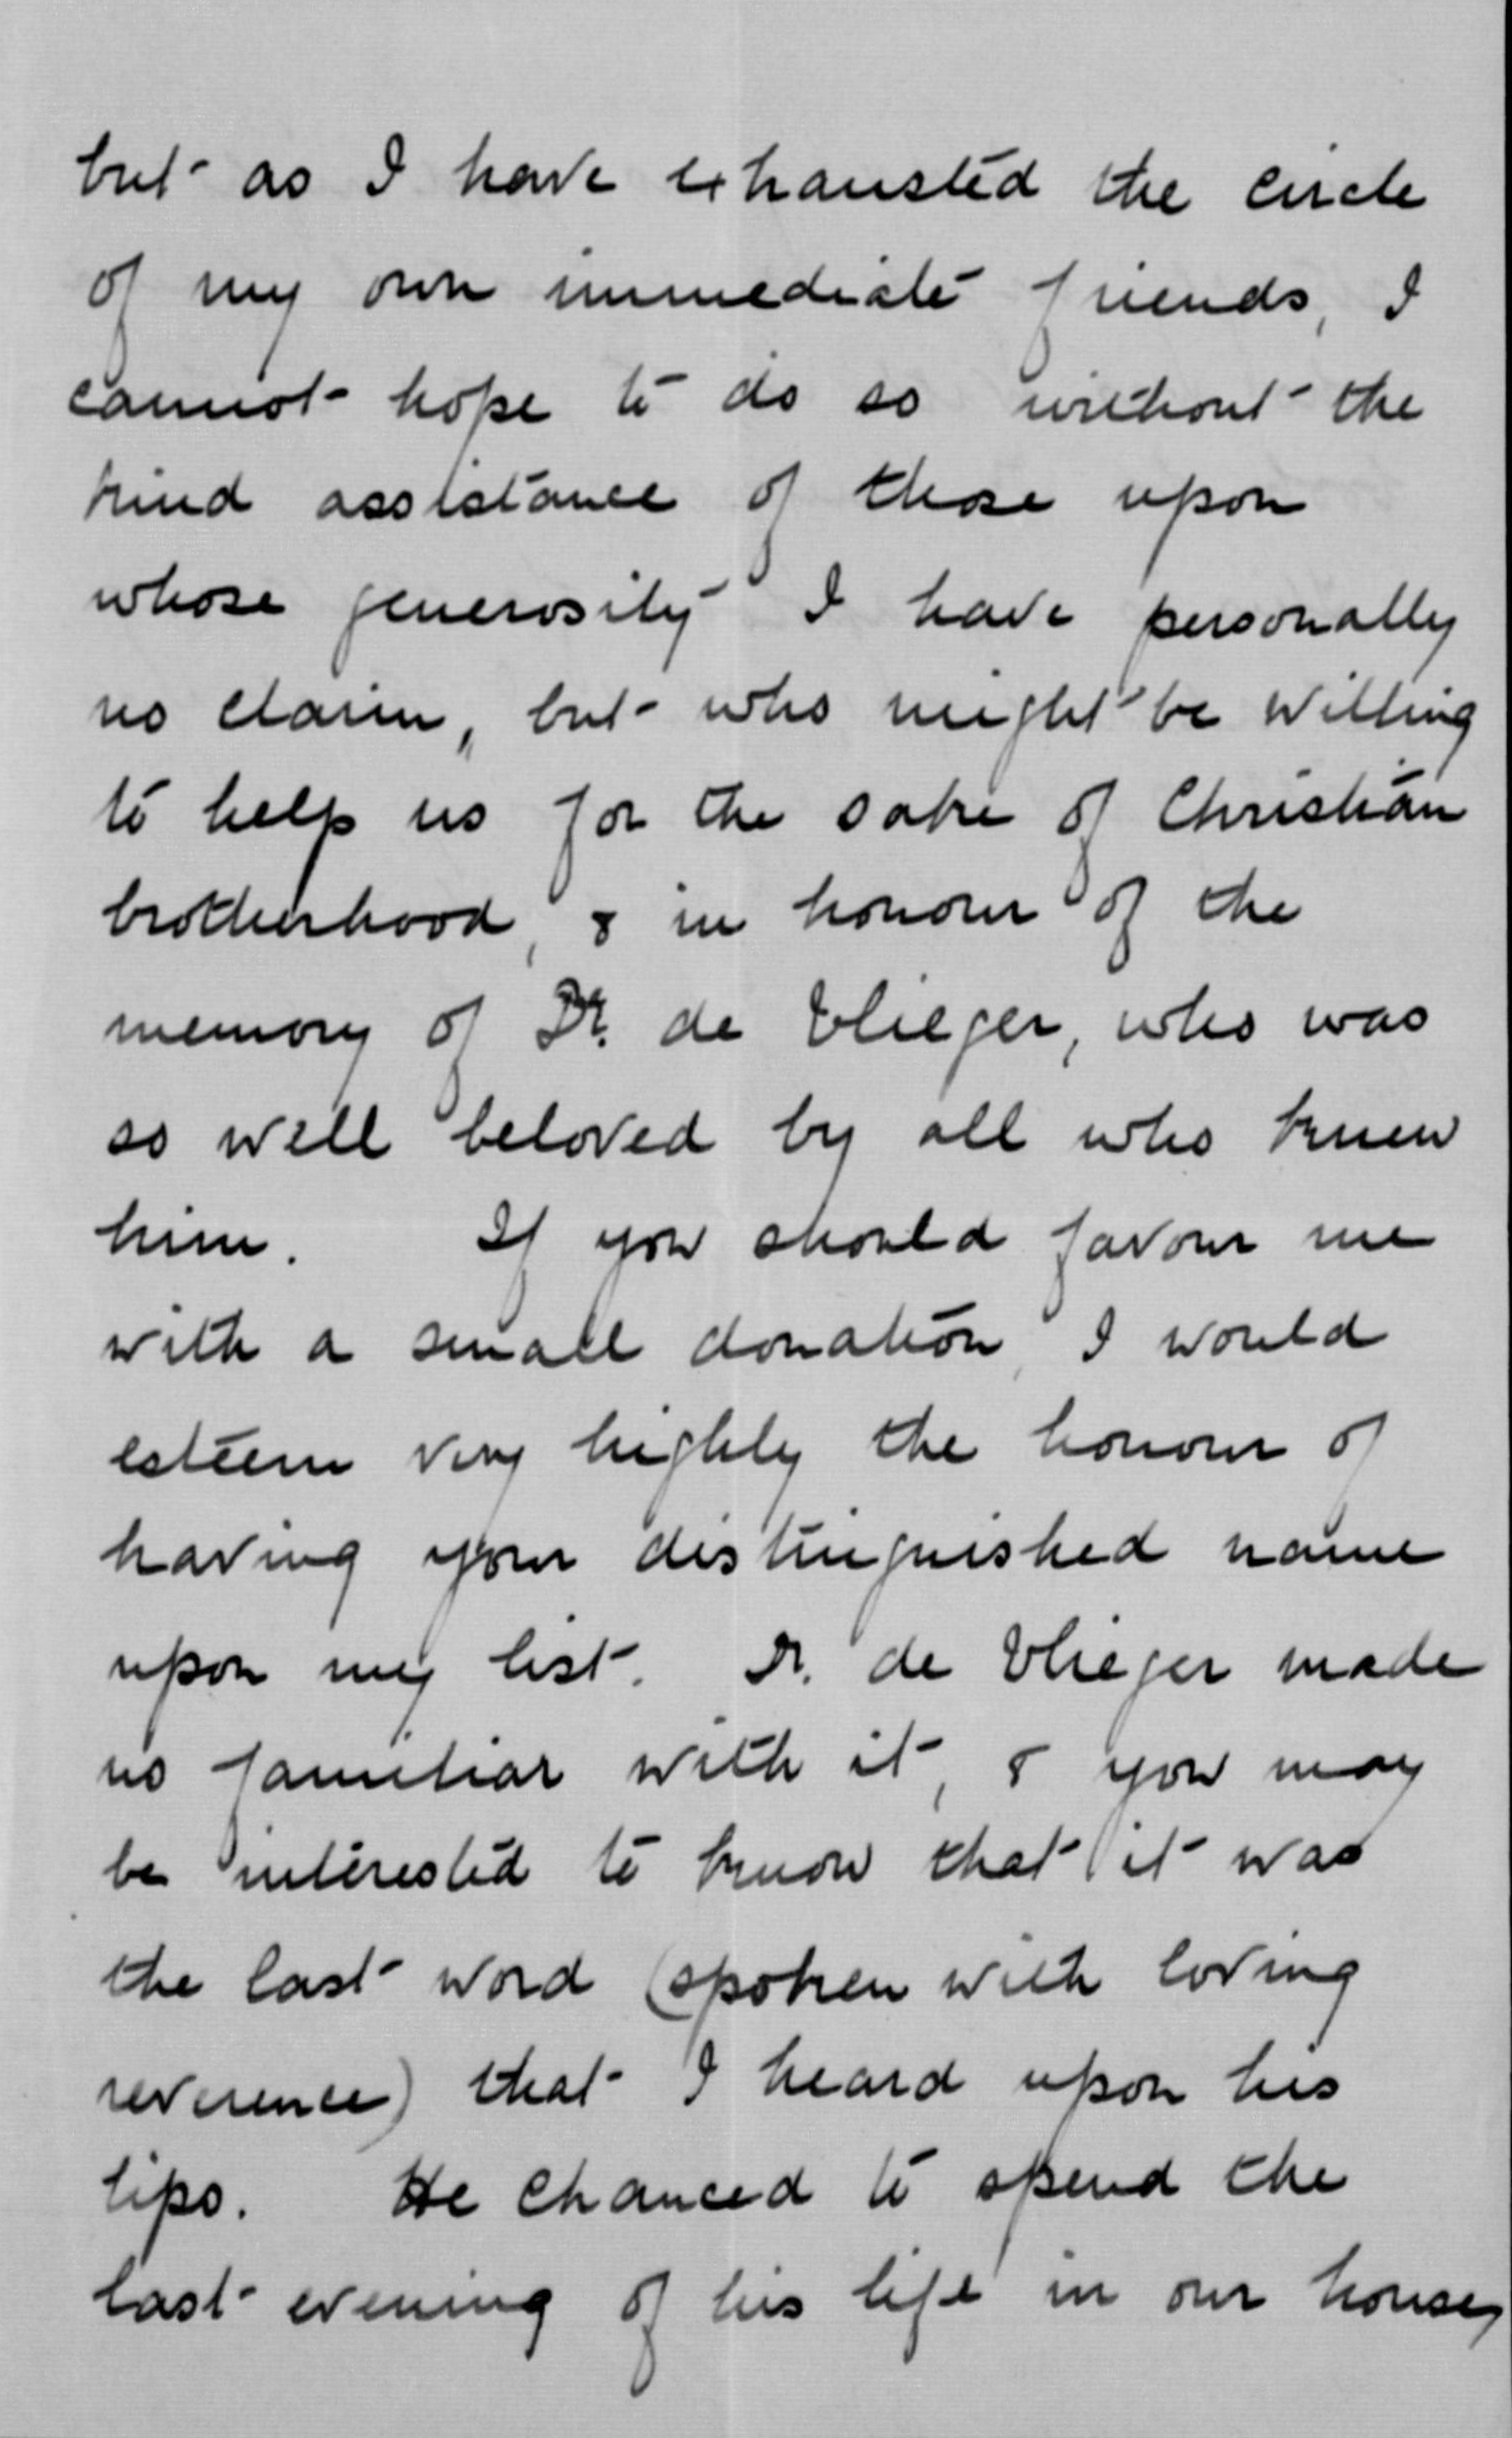 but as I have exhausted the circle
of my own immediate friends, I
cannot hope to do so without the
kind assistance of those upon
whose generosity I have personally
no claim, but who might be willing
to help us for the sake of Christian
brotherhood, & in honour of the
memory of Dr. de Vlieger, who was
so well beloved by all who knew
him. If you should favour me
with a small donation, I would
esteem very highly the honour of
having your distinguished name
upon my list. Dr. de Vlieger made
us familiar with it, & you may
be interested to know that it was
the last word (spoken with loving
reverence) that I heard upon his
lips. He chanced to spend the
last evening of his life in our house,